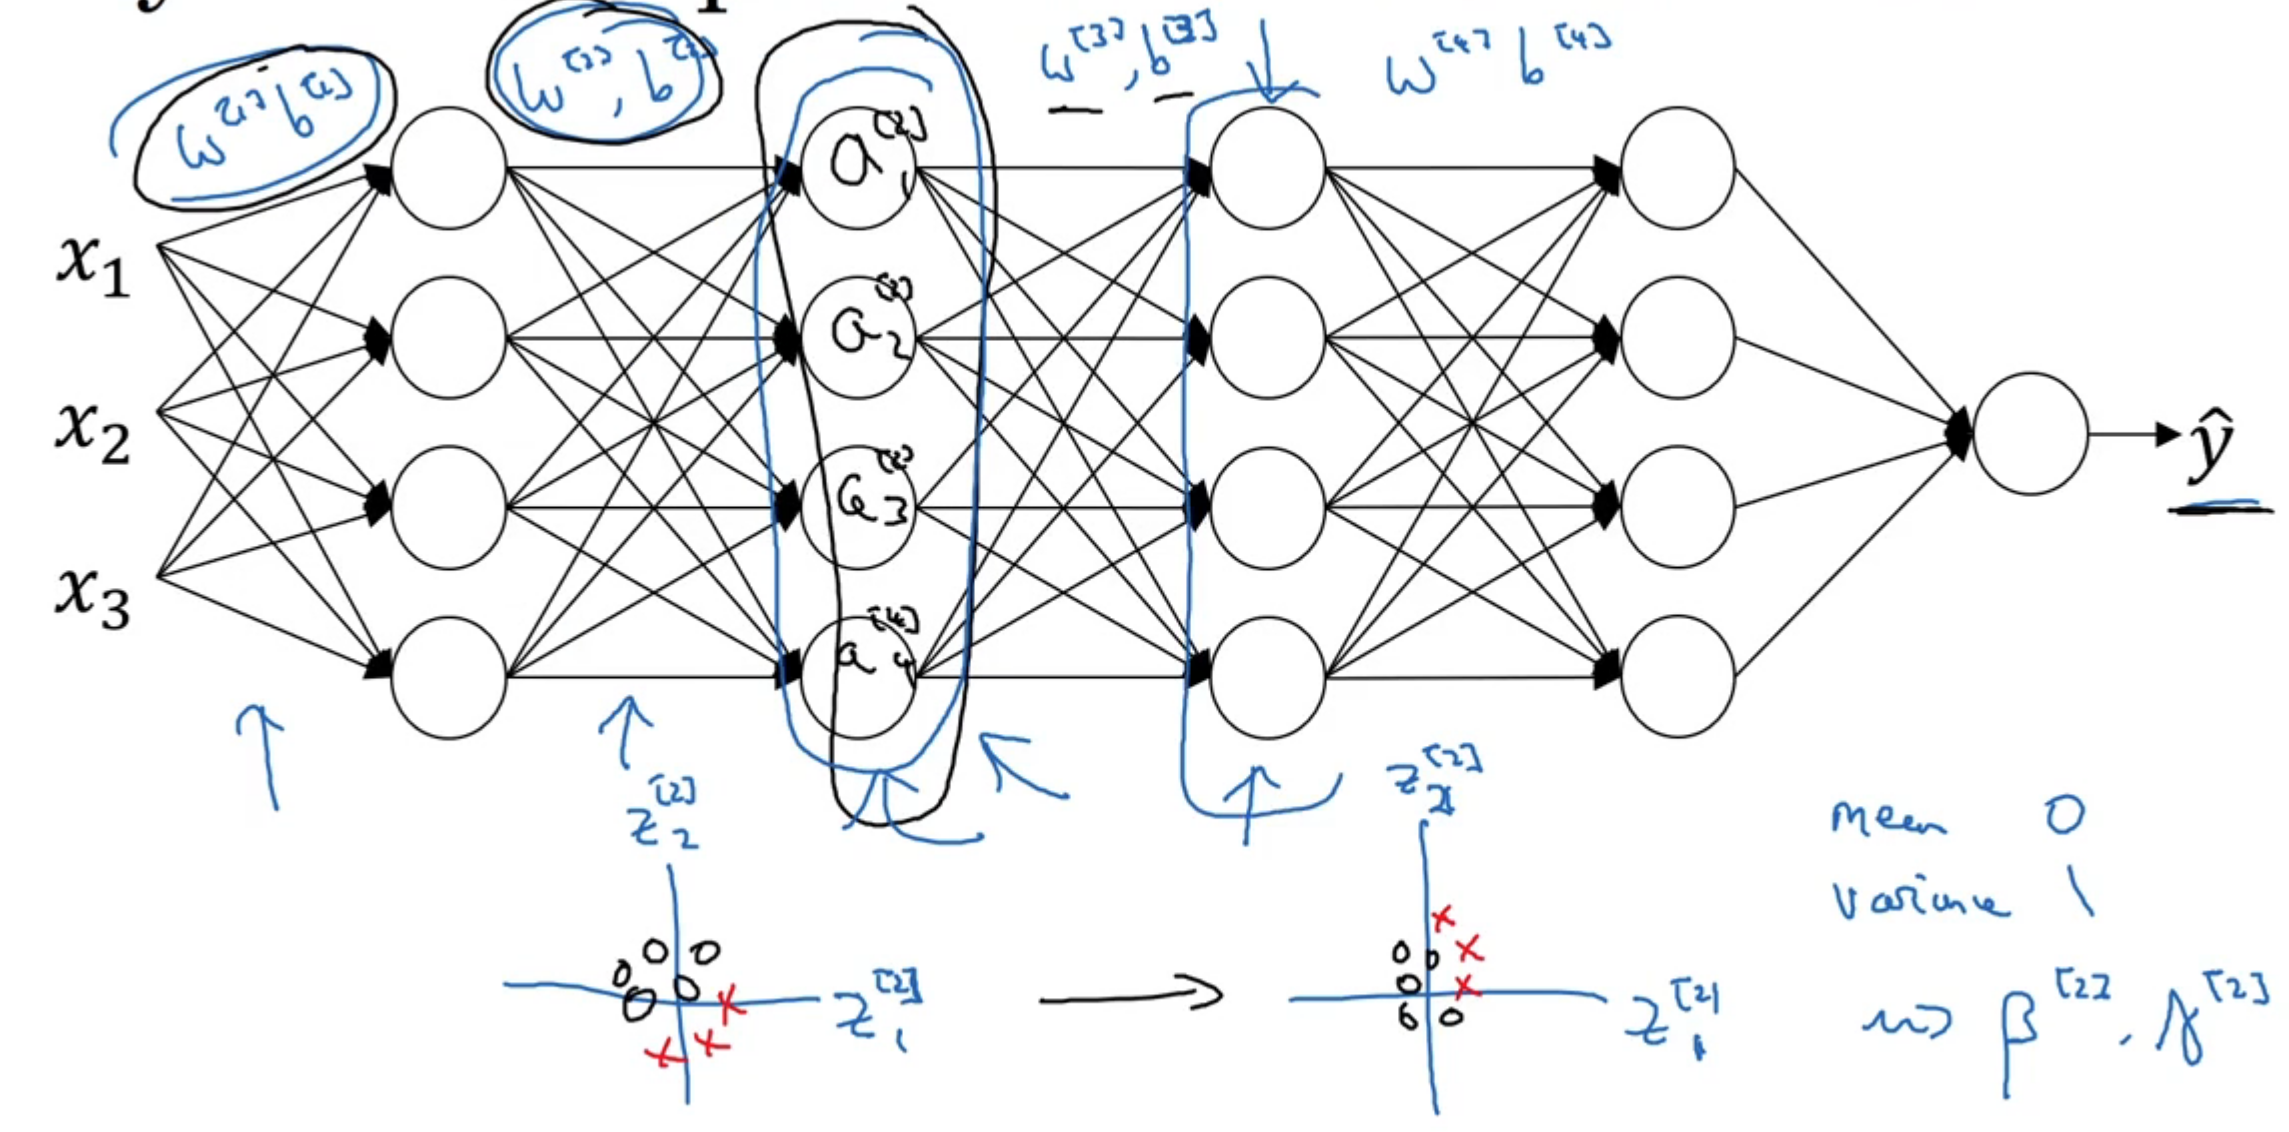 w[1] b[1]
w[2], b[2]
w[3], b[3]
w[4] b[4]
x1
x2
x3
a1[2]
a2[2]
a3[2]
a4[4]
ŷ
z2[2]
z1[2]
z2[2]
z1[2]
mean 0
variance 1
β[2], γ[2]